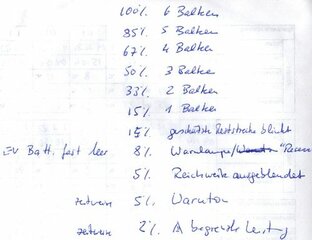 100% 6 Balken
85% 5 Balken
67% 4 Balken
50% 3 Balken
33% 2 Balken
15% 1 Balken
15% geschätzte Reststrecke blinkt
EV Batt. fast leer 8% Warnlampe/
5% Reichweite ausgeblendet
zeitweise 5% Warnton
zeitweise 2% begrenzte Leistung